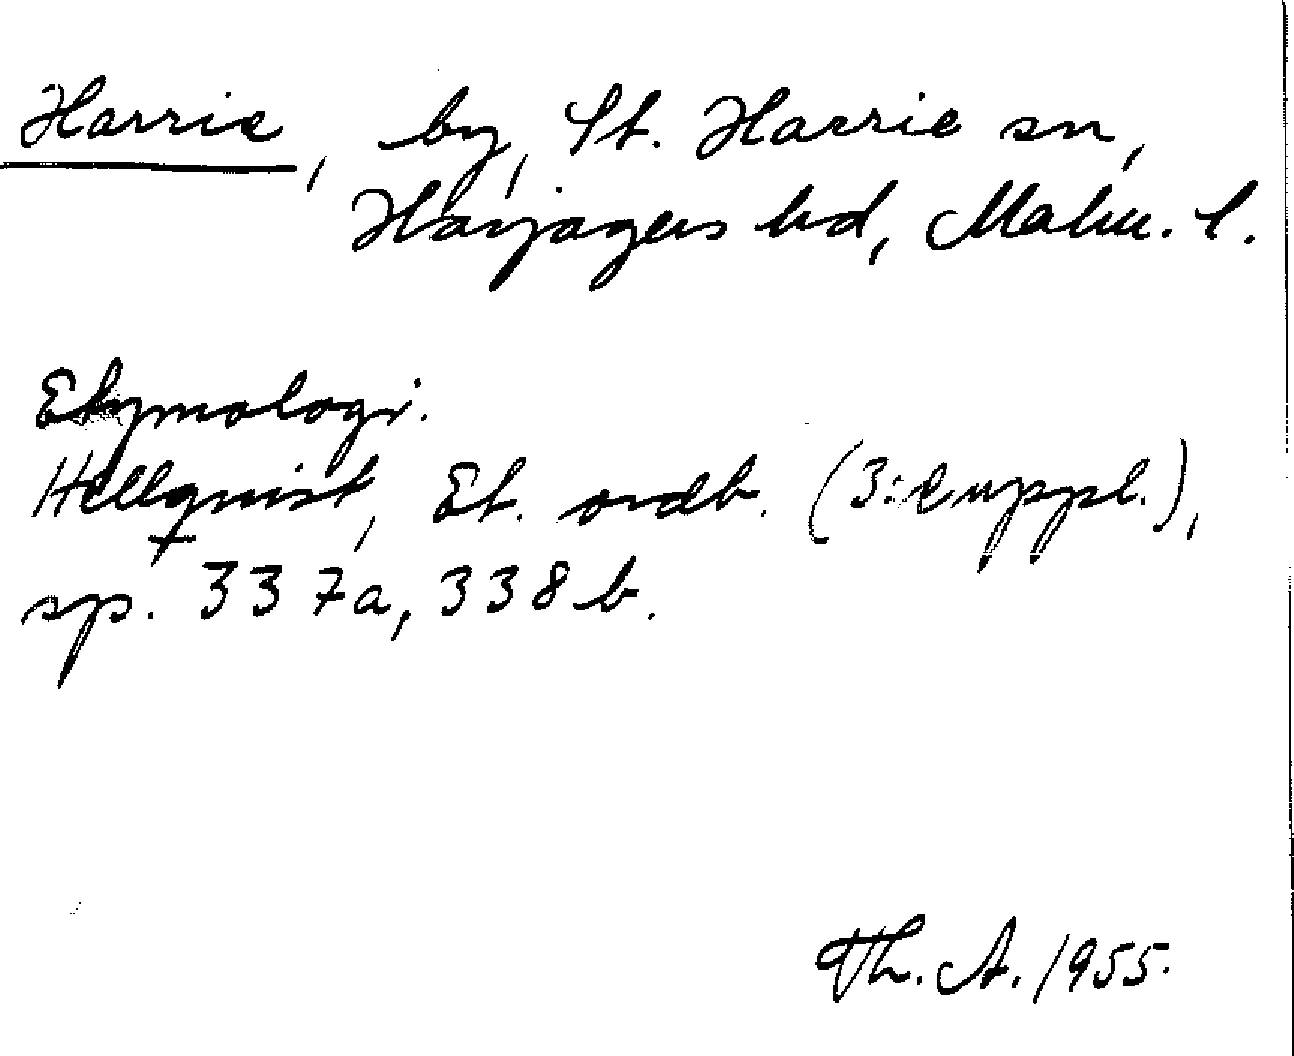 Harrie, by, St. Harrie sn,
Harjagers hd, Malm. l.
Etymologi.
Hellquist, Et. ordb. (3:e uppl.),
sp. 337a, 338b.
Th. A. 1955.